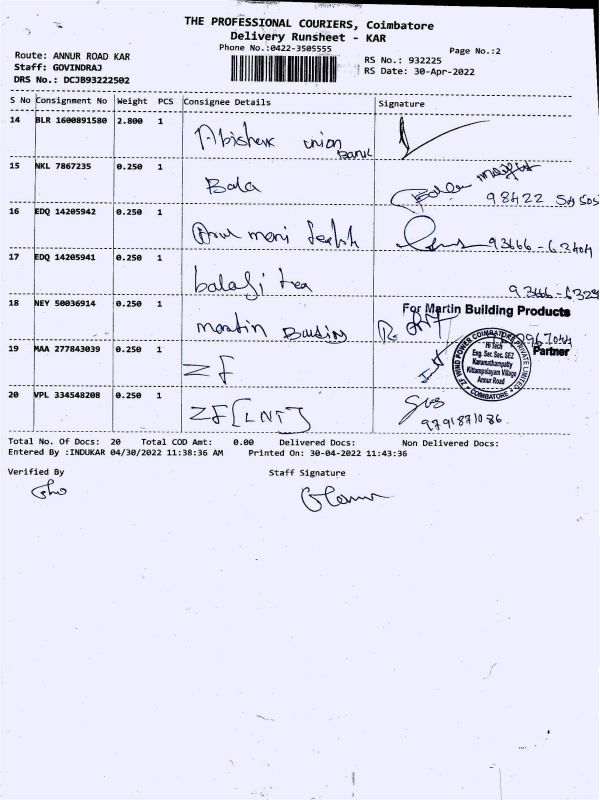 THE PROFESSIONAL COURIERS, Coimbatore
Delivery Runsheet - KAR
Phone No.:0422-3505555
Page No.:2
Route: ANNUR ROAD KAR
Staff: GOVINDRAJ
DRS No.: DCJB93222502
RS No.: 932225
RS Date: 30-Apr-2022
S No Consignment No Weight PCS Consignee Details Signature
14 BLR 1600891580 2.800 1 union Bank
15 NKL 7867235 0.250 1 Bala
98422
16 EDQ 14205942 0.250 1 mani
93666-62404
17 EDQ 14205941 0.250 1 balaji tea
93666-
18 NEY 50036914 0.250 1 martin
For Martin Building Products
Partner
19 MAA 277843039 0.250 1 ZF
ZF WIND POWER COIMBATORE PRIVATE LIMITED
Hi Tech
Eng. Sec. Sec. SEZ
Karumathampatty
Kittampalayam Village
Annur Road
COIMBATORE
20 VPL 334548208 0.250 1 ZF [LNT]
9791871086
Total No. Of Docs: 20 Total COD Amt: 0.00 Delivered Docs: Non Delivered Docs:
Entered By :INDUKAR 04/30/2022 11:38:36 AM Printed On: 30-04-2022 11:43:36
Verified By Staff Signature